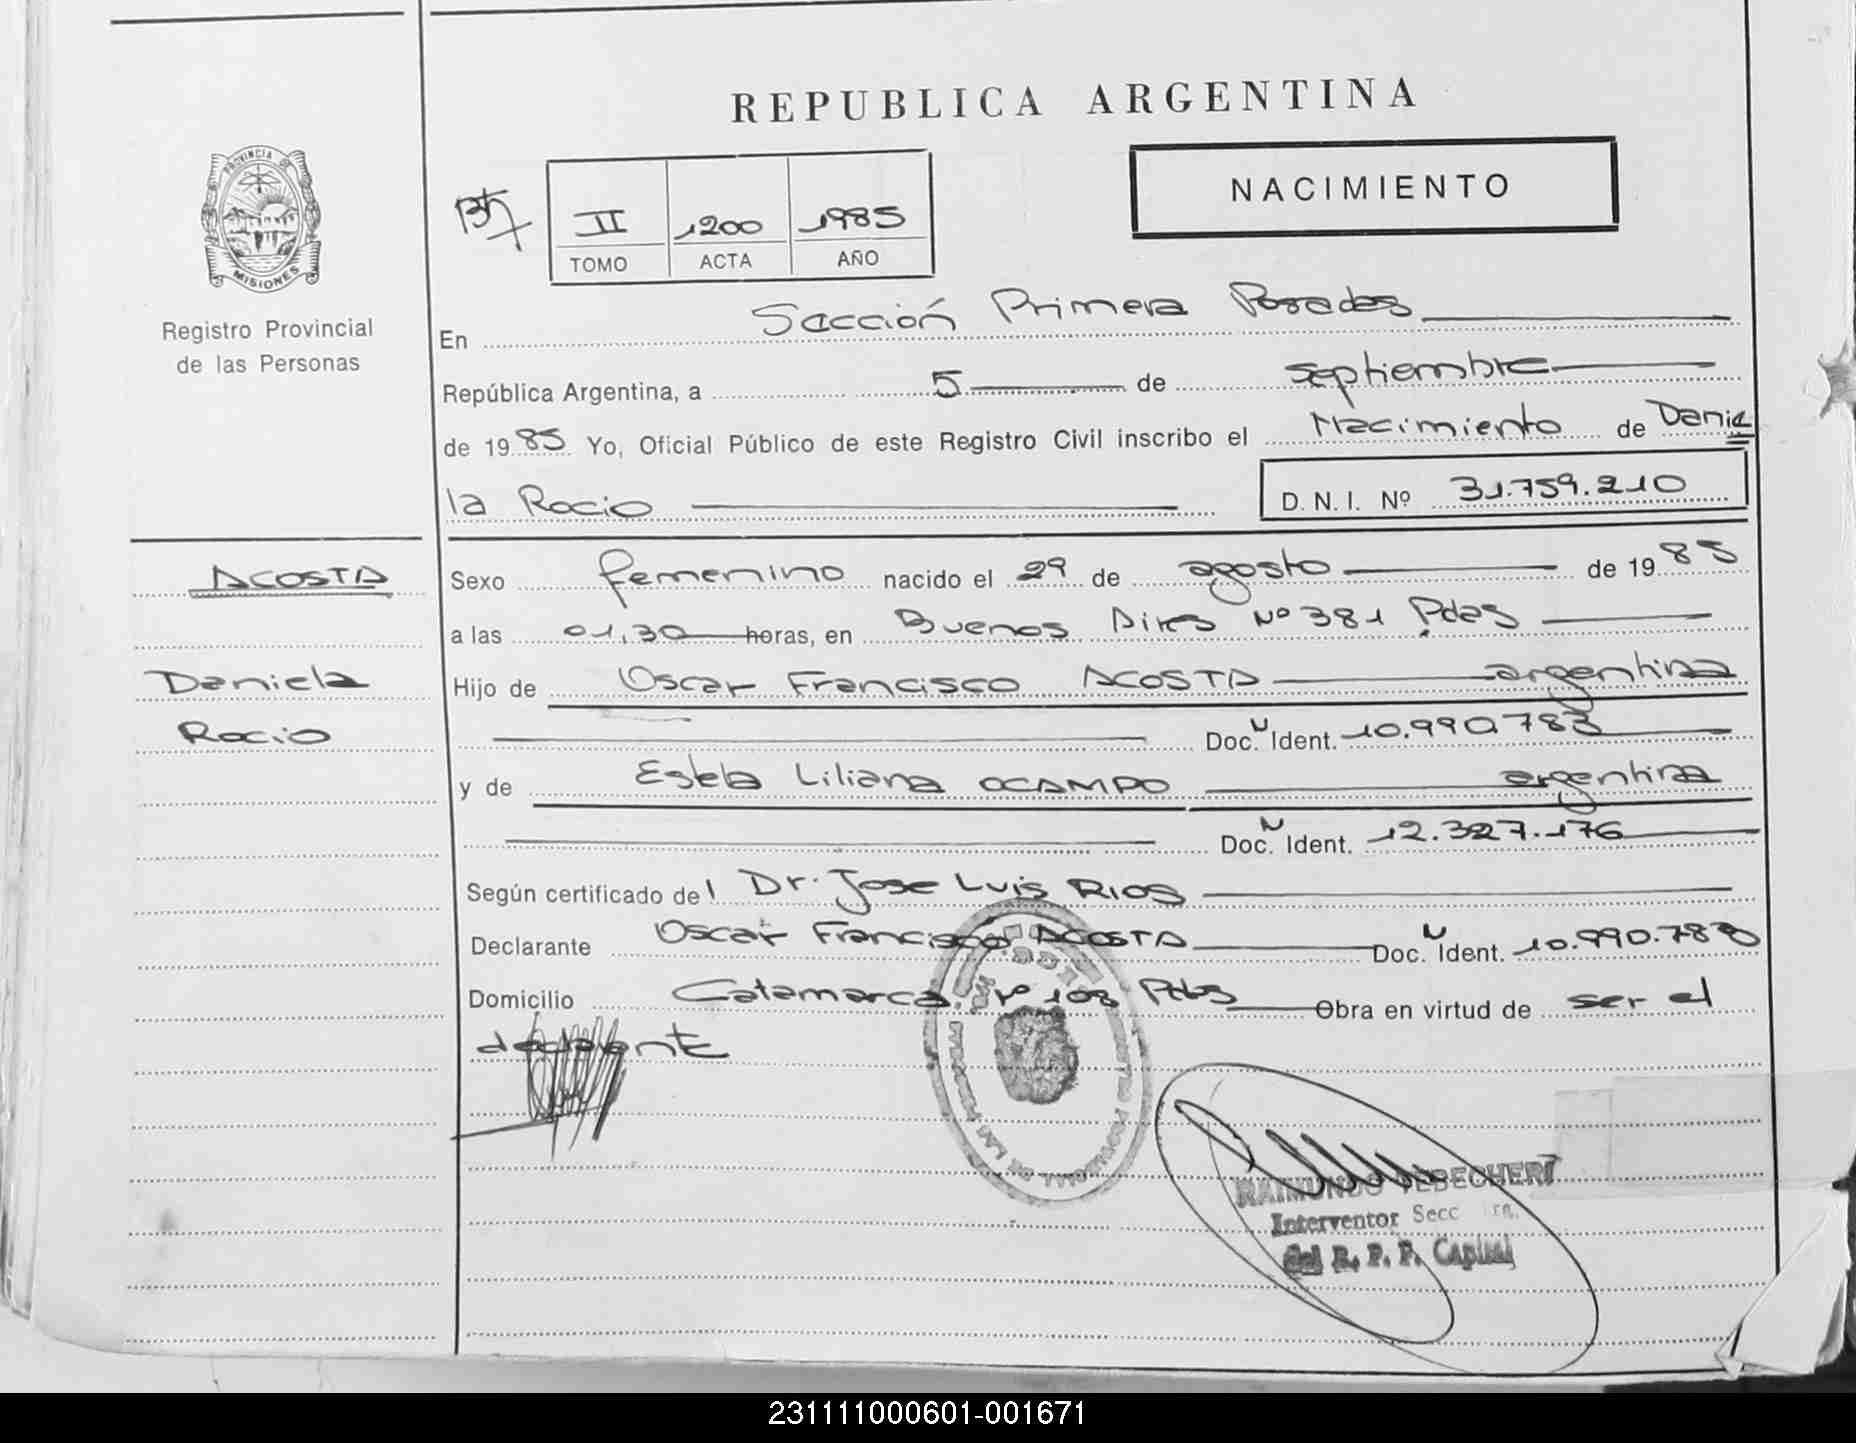 REPUBLICA ARGENTINA
PROVINCIA DE
MISIONES
Registro Provincial
de las Personas
II 1200 1985
TOMO ACTA AÑO
NACIMIENTO
En Sección Primera Posadas
República Argentina, a 5 de septiembre
de 19 85 Yo, Oficial Público de este Registro Civil inscribo el Nacimiento de Danie
la Rocio D. N. I. Nº 31.759.210
ACOSTA
Daniela
Rocio
Sexo femenino nacido el 29 de agosto de 19 85
a las 01,30 horas, en Buenos Aires Nº 381 Pdas
Hijo de Oscar Francisco ACOSTA argentina
Doc. N Ident. 10.990.783
y de Estela Liliana OCAMPO argentina
Doc. N Ident. 12.327.176
Según certificado del Dr. Jose Luis RIOS
Declarante Oscar Francisco ACOSTA Doc. N Ident. 10.990.783
Domicilio Catamarca Nº 108 Pdas Obra en virtud de ser el
declarante
RAIMUNDO TEBECHERI
Interventor Secc 1ra.
del R. P. P. Capital
231111000601-001671